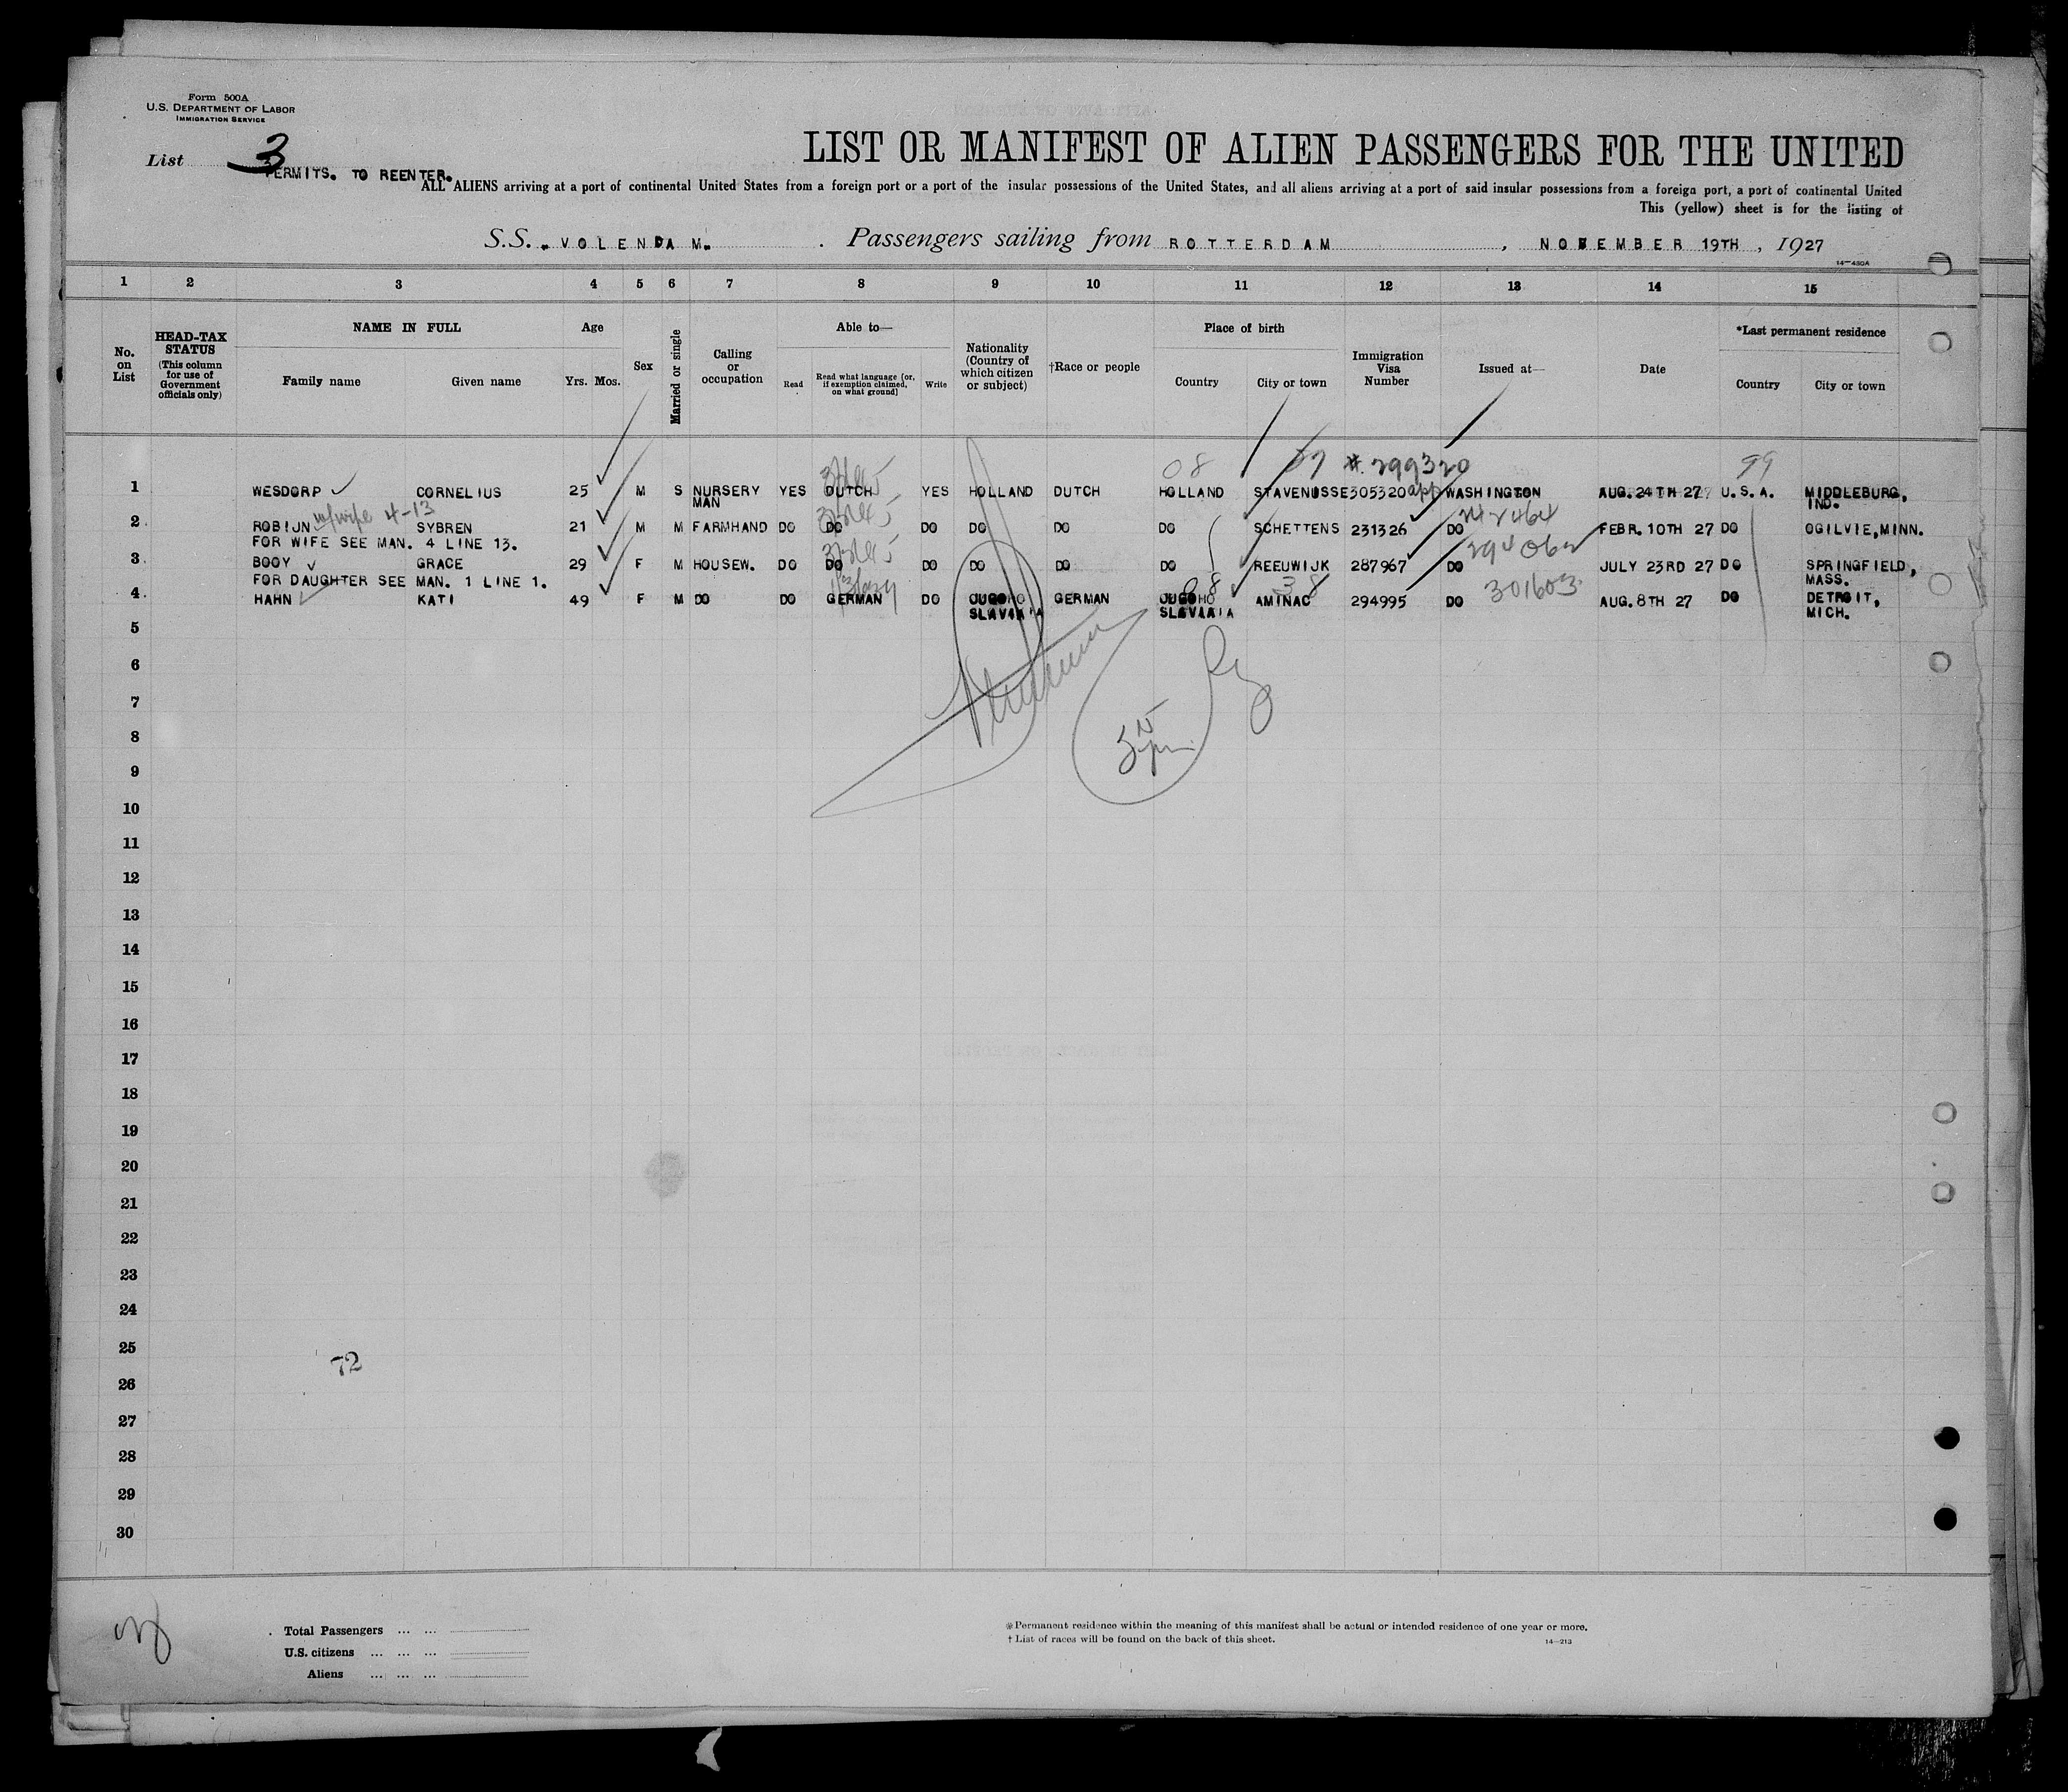 Form 500A
U.S. DEPARTMENT OF LABOR
IMMIGRATION SERVICE
List 3
PERMITS. TO REENTER.
LIST OR MANIFEST OF ALIEN PASSENGERS FOR THE UNITED
ALL ALIENS arriving at a port of continental United States from a foreign port or a port of the insular possessions of the United States, and all aliens arriving at a port of said insular possessions from a foreign port, a port of continental United
This (yellow) sheet is for the listing of
S.S. VOLENDAM. Passengers sailing from ROTTERDAM, NOVEMBER 19TH, 1927
14—430A
1 2 3 4 5 6 7 8 9 10 11 12 13 14 15
No. on List
HEAD-TAX STATUS (This column for use of Government officials only)
NAME IN FULL
Family name Given name
Age
Yrs. Mos.
Sex
Married or single
Calling or occupation
Able to—
Read
Read what language [or, if exemption claimed, on what ground]
Write
Nationality (Country of which citizen or subject)
†Race or people
Place of birth
Country City or town
Immigration Visa Number
Issued at—
Date
*Last permanent residence
Country City or town
08 37 #299320 99
1 WESDORP CORNELIUS 25 M S NURSERY MAN YES DUTCH YES HOLLAND DUTCH HOLLAND STAVENISSE 305320 app WASHINGTON AUG.24TH 27 U.S.A. MIDDLEBURG, IND.
w/wife 4-13
2 ROBIJN SYBREN 21 M M FARMHAND DO DO DO DO DO DO SCHETTENS 231326 DO FEBR.10TH 27 DO OGILVIE,MINN.
FOR WIFE SEE MAN. 4 LINE 13.
3 BOOY GRACE 29 F M HOUSEW. DO DO DO DO DO DO REEUWIJK 287967 DO JULY 23RD 27 DO SPRINGFIELD, MASS.
FOR DAUGHTER SEE MAN. 1 LINE 1.
4 HAHN KATI 49 F M DO DO GERMAN DO JUGO SLAVIA GERMAN JUGO SLAVIA AMINAC 294995 DO 301603 AUG.8TH 27 DO DETROIT, MICH.
5
6
7
8
9
10
11
12
13
14
15
16
17
18
19
20
21
22
23
24
25
72
26
27
28
29
30
Total Passengers
U.S. citizens
Aliens
*Permanent residence within the meaning of this manifest shall be actual or intended residence of one year or more.
† List of races will be found on the back of this sheet.
14—213